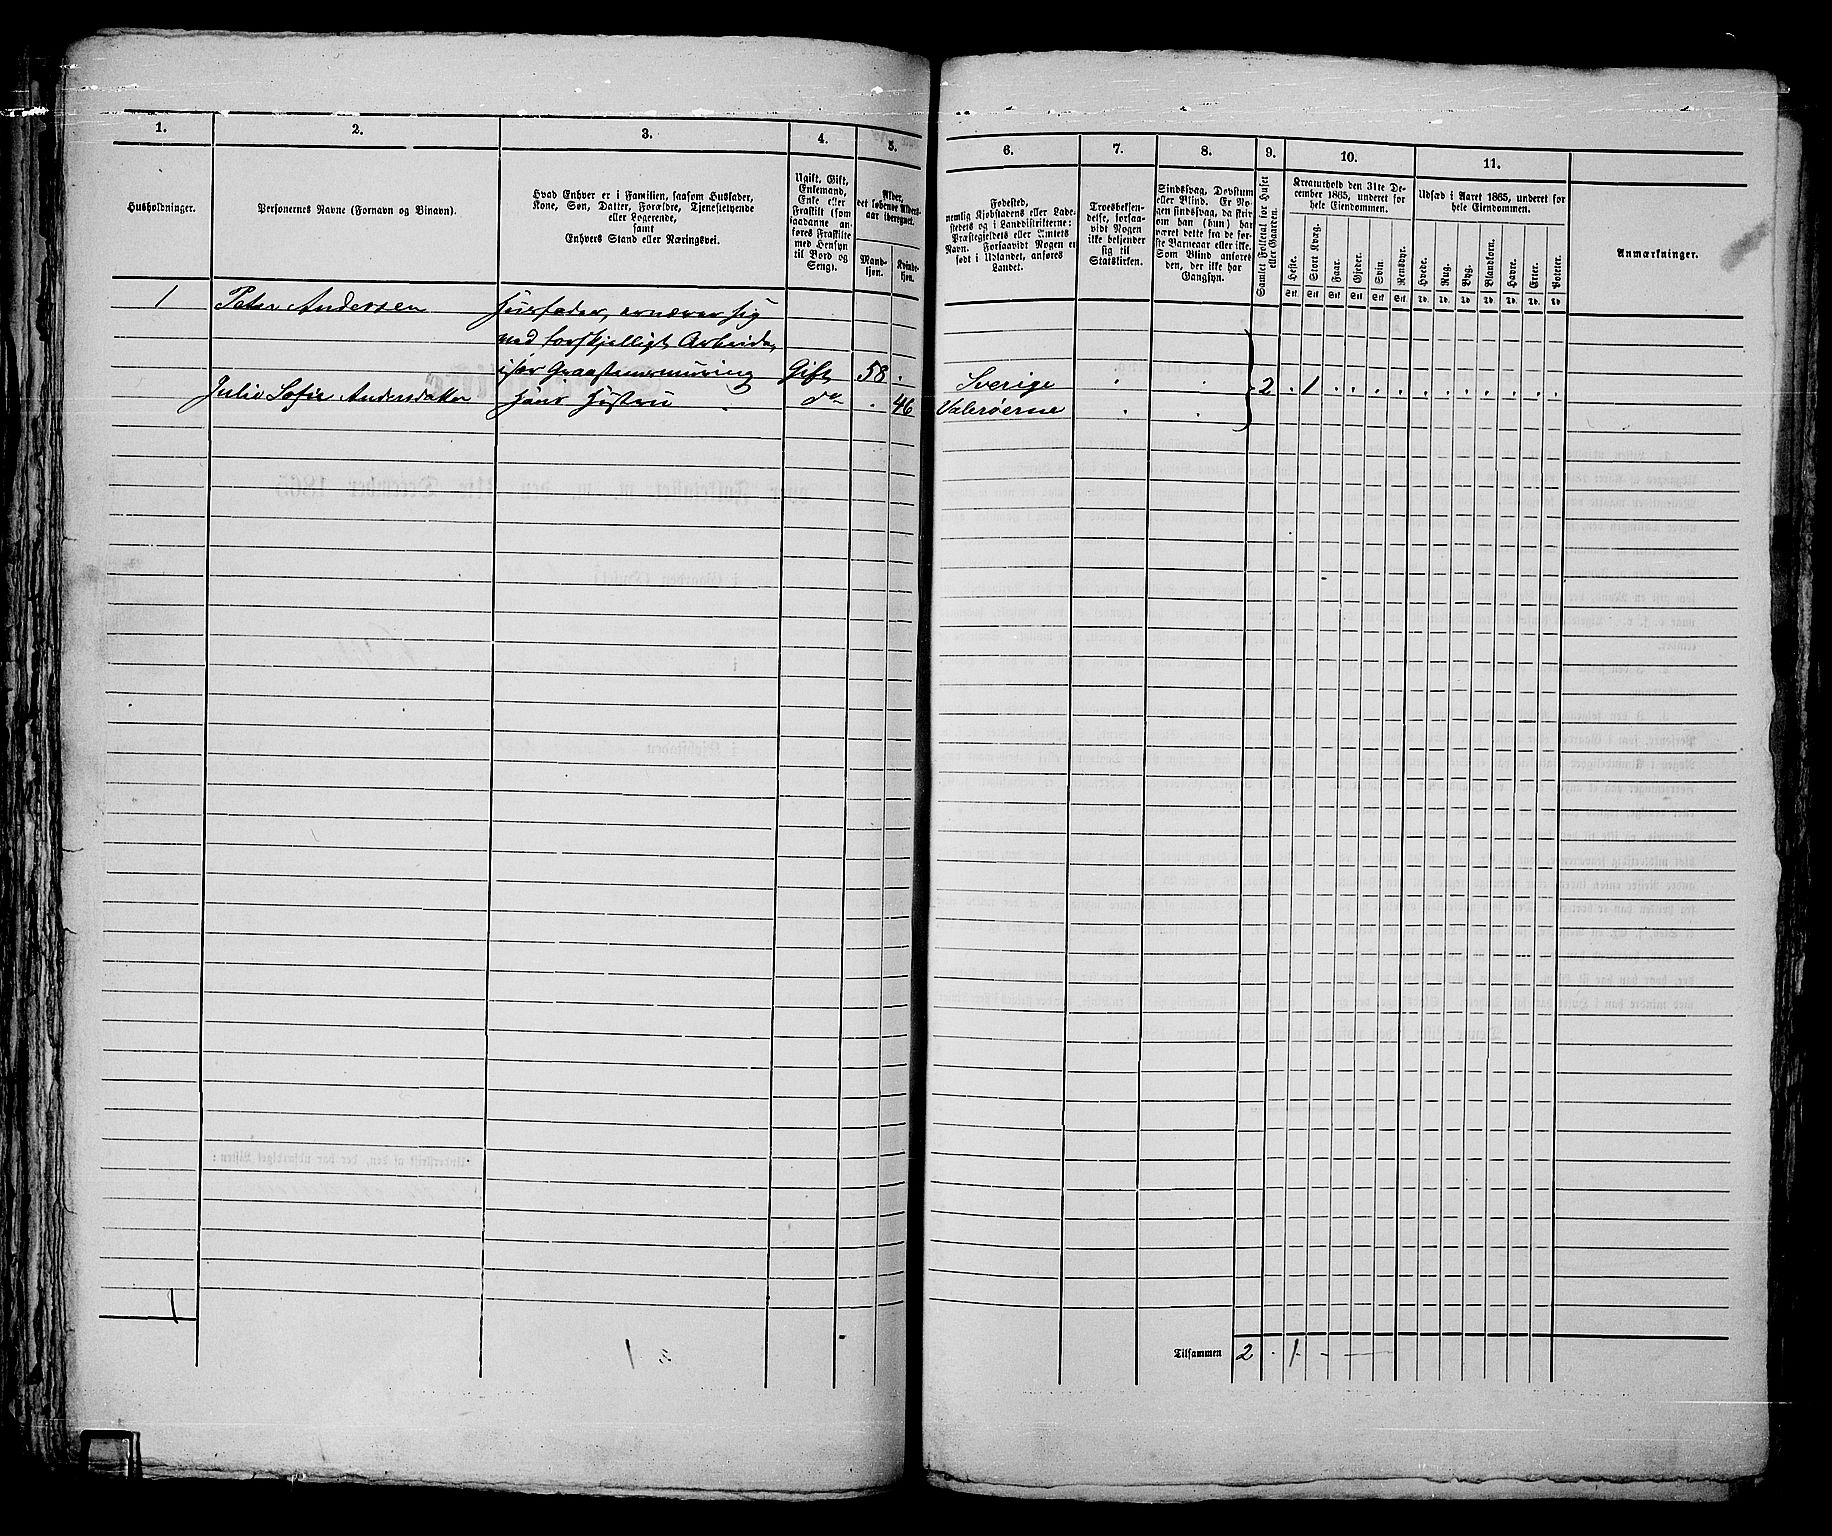 1. 2. 3. 4. 5. 6. 7. 8. 9. 10. 11.
Husholdninger.
Personernes Navne (Fornavn og Binavn).
Hvad Enhver er i Familien, saasom Husfader,
Kone, Søn, Datter, Forældre, Tjenestetyende
eller Logerende,
samt
Enhvers Stand eller Næringsvei.
Ugift, Gift,
Enkemand,
Enke eller
Fraskilt (som
saadanne an-
føres Fraskilte
med Hensyn
til Bord og
Seng).
Alder,
det løbende Alders-
aar iberegnet.
Mand-
kjøn.
Kvinde-
kjøn.
Fødested,
nemlig Kjøbstadens eller Lade-
stedets og i Landdistrikterne:
Præstegjeldets eller Amtets
Navn. Forsaavidt Nogen er
født i Udlandet, anføres
Landet.
Troesbekjen-
delse, forsaa-
vidt Nogen
ikke bekjender
sig til
Statskirken.
Sindssvag, Døvstum
eller Blind. Er No-
gen sindssvag, da skri-
ves om han (hun) har
været dette fra de før-
ste Barneaar eller ikke.
Som Blind anføres
den, der ikke har
Gangsyn.
Samlet Folketal for Huset
eller Gaarden.
Kreaturhold den 31te De-
cember 1865, underet for
hele Eiendommen.
Heste. Stort Kvæg. Faar. Gjeder. Svin. Rensdyr.
Stk. Stk. Stk. Stk. Stk. Stk.
Udsæd i Aaret 1865, underet for
hele Eiendommen.
Hvede. Rug. Byg. Blandkorn. Havre. Erter. Poteter.
Td. Td. Td. Td. Td. Td. Td.
Anmærkninger.
1 Peter Andersen Huusfader, ernærer sig
med forskjelligt Arbeide,
især Graastensmuring Gift 58 . Sverige . . 2 . 1 . . . . . . . . . . .
Julie Sofie Andersdatter Hans Hustru do . 46 Valøerne . .
1
1
Tilsammen 2 . 1 - -